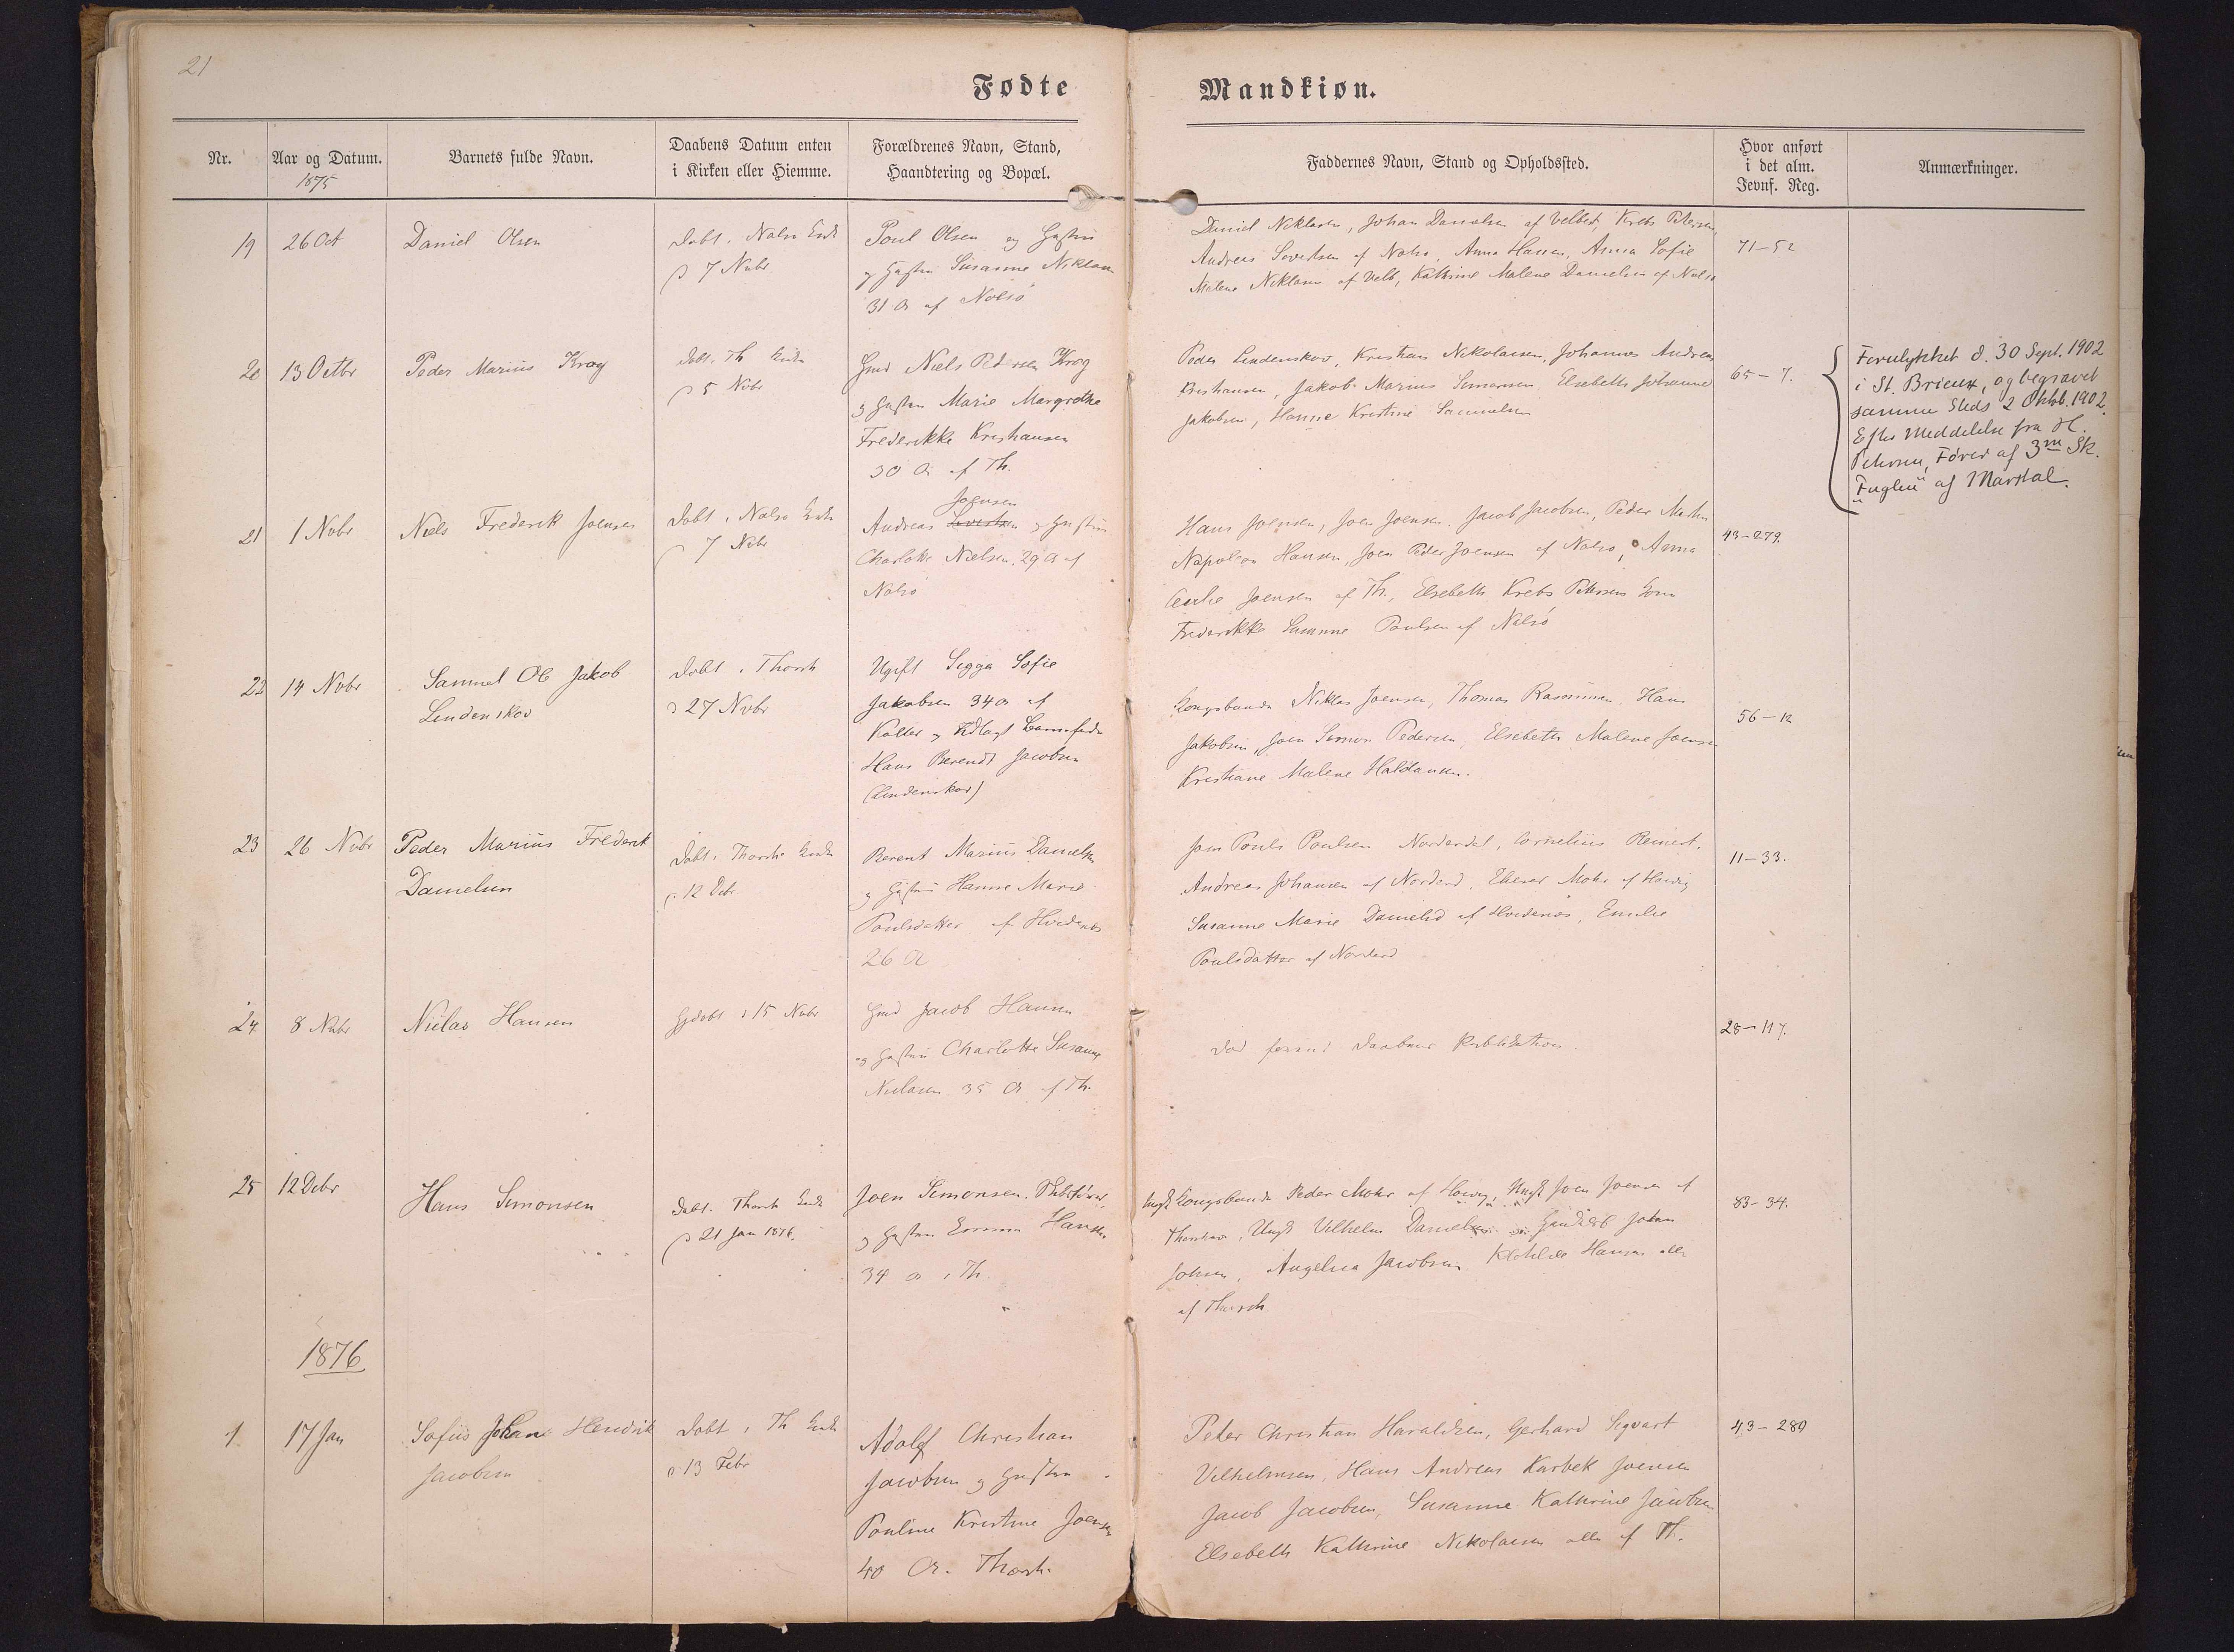 21
Fødte
Mandkiøn.
Nr.
Aar og Datum.
1875
Barnets fulde Navn.
Daabens Datum enten
i Kirken eller Hiemme.
Forældrenes Navn, Stand,
Haandtering og Bopæl.
Faddernes Navn, Stand og Opholdssted.
Hvor anført
i det alm.
Jevnf. Reg.
Anmærkninger.
19
26 Oct
Daniel Olsen
Døbt i Nolsø Kirke
d 7 Nvbr
Poul Olsen og Hustru
og Hustru Susanne Niklasen
31 Ar af Nolsø
Daniel Niklasen, Johan Danielsen af Velbest, Krebs Petersen
Andreas Sivertsen af Nolsø, Anna Hansen, Anna Sofie
Malene Niklasen af Velb, Kathrine Malene Danielsen af Nolsø
71-52
20
13 Octbr
Peder Marius Krog
Døbt i Th Kirke
d 5 Nvbr
Gmd Niels Pedersen Krog
og Hustru Marie Margrethe
Frederikke Kristiansen
30 Ar af Th.
Peder Lindenskov, Kristian Nikolaisen, Johannes Andreas
Kristiansen, Jakob Marius Simonsen, Elsebeth Johanne
Jakobsen, Hanne Kristine Samuelsen
65-7.
Forulykket d. 30 Sept. 1902
i St. Brieux, og begravet
samme Steds 2 Oktb. 1902.
Efter Meddelelse fra H.
Petersen, Fører af 3m Sk.
"Fuglen" af Marstal.
21
1 Nvbr
Niels Frederik Joensen
Døbt i Nolsø Kirke
d 7 Nvbr
Joensen
Andreas Sivertsen og Hustru
Charlotte Nielsen, 29 Ar af
Nolsø
Hans Joensen, Joen Joensen, Jacob Jacobsen, Peder Martin
Napoleon Hansen, Joen Peder Joensen af Nolsø, Anna
Cecilie Joensen af Th., Elsebeth Krebs Petersens Kone
Frederikke Susanne Poulsen af Nolsø
43-279.
22
14 Nvbr
Samuel Ole Jakob
Lindenskov
Døbt i Thorsh
d 27 Nvbr
Ugift Sigga Sofie
Jakobsen 34 Ar af
Kolter og Udlagt Barnefader
Hans Berendt Jacobsen
(Lindenskov)
Kongsbonde Niklas Joensen, Thomas Rasmussen, Hans
Jakobsen, Joen Simon Pedersen, Elsebeth Malene Joensen
Kristiane Malene Haldansen.
56-12
23
26 Nvbr
Peder Marius Frederik
Danielsen
Døbt i Thorsh Kirke
d. 12 Dcbr
Berent Marius Danielsen
og Hustru Hanne Marie
Poulsdatter af Hvidenæs
26 Ar
Joen Pouls Poulsen Norderdal, Cornelius Reinert
Andreas Johansen af Norderd, Ebeser Mohr af Hoivig
Susanne Marie Danielsd af Hvidenæs, Emilie
Poulsdatter af Norderd
11-33.
24
8 Nvbr
Niclas Hansen
Hjdøbt d 15 Nvbr
Gmd Jacob Hansen
og Hustru Charlotte Susanne
Niclasen 35 Ar af Th.
Død forind Daabens Publikation
28-117.
25
12 Dcbr
Hans Simonsen
Døbt i Thorsh Kirke
d 21 Jan 1876.
Joen Simonsen
og Hustru Emma Hansen
34 Ar i Th.
Ungk Kongsbonde Peder Mohr af Hoivig, Ungk Joen Joensen af
Thorshavn, Ungk Vilhelm Danielsen Johan
Johnsen, Angelica Jacobsen Klotilde Hansen alle
af Thorsh
83-34.
1876
1
17 Jan
Sofus Johan Hendrik
Jacobsen
Døbt i Th Kirke
d 13 Febr
Adolf Christian
Jacobsen og Hustru
Pouline Kristine Joensen
40 Ar. Thorsh.
Peter Christian Haraldsen, Gerhard Sigvart
Vilhelmsen, Hans Andreas Karbek Joensen
Jacob Jacobsen, Susanne Kathrine Jacobsen
Elsebeth Kathrine Nikolaisen alle af Th.
43-289